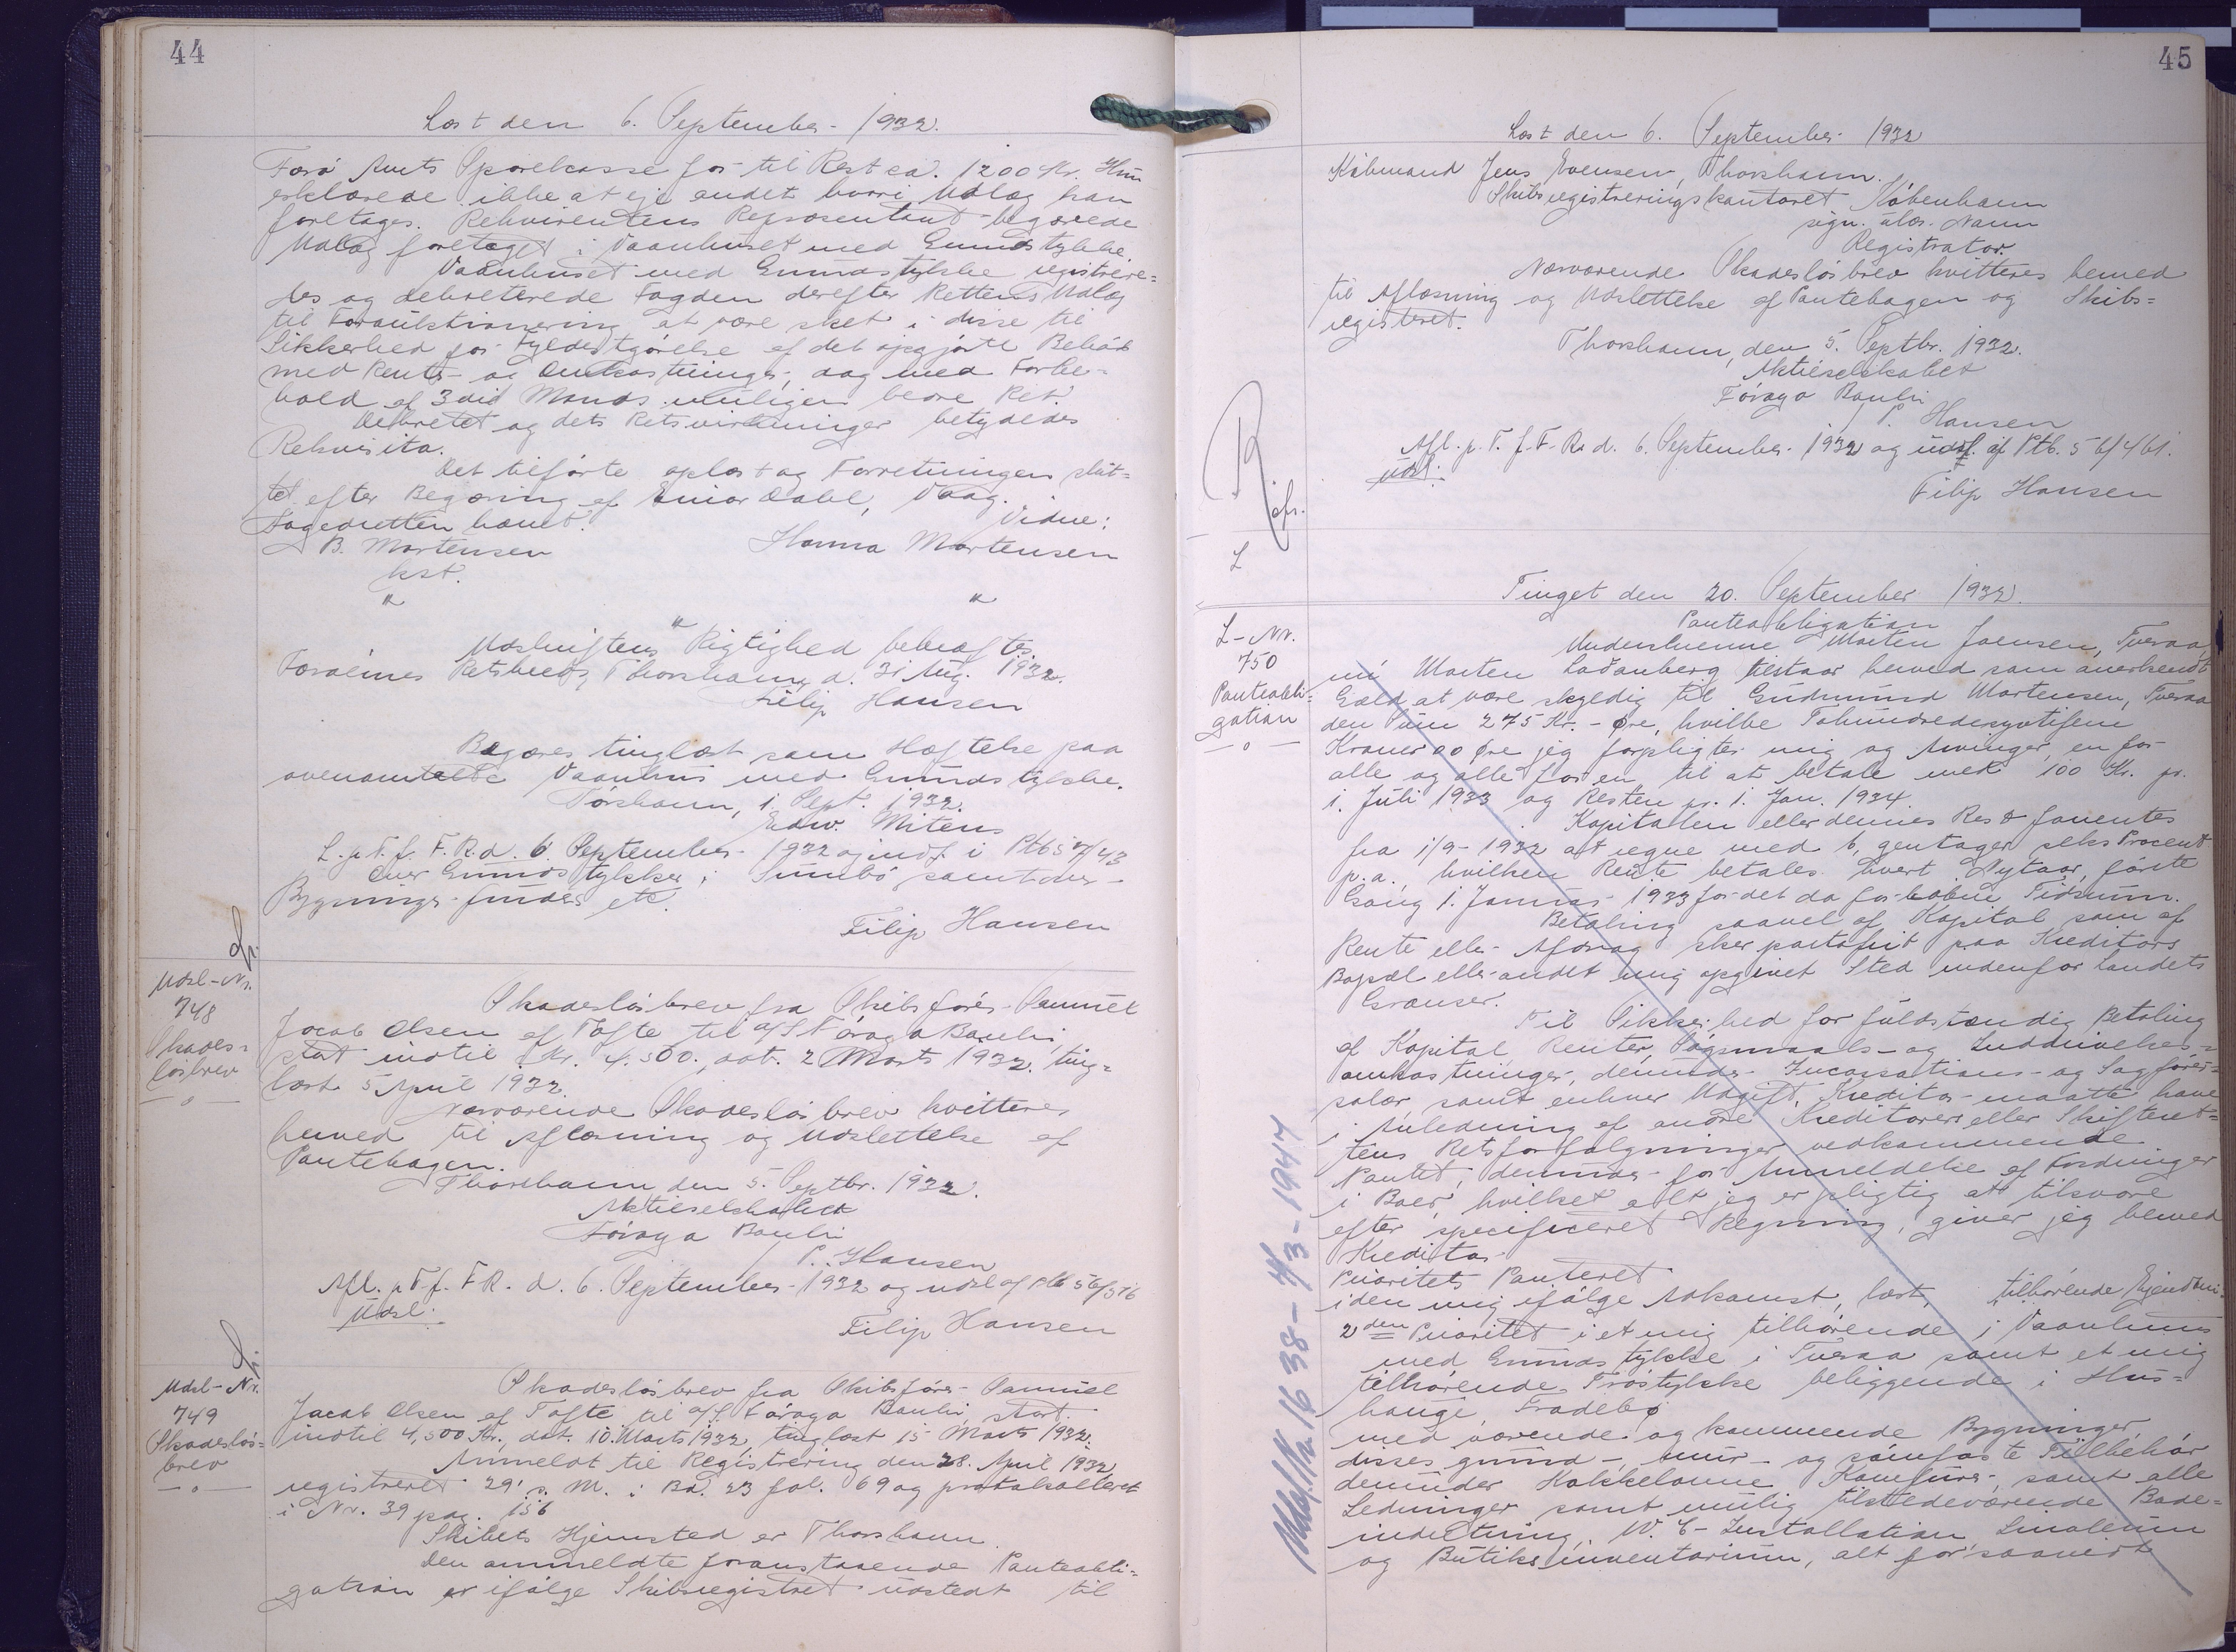 44
Læst den 6. September 1932.
Færø Amts Sparekasse for til Rest ca. 1200 Kr. Hun
erklærede ikke at eje andet hvori Udlæg kan
foretages. Rekvirentens Repræsentant begærede
Udlæg foretaget i Vaanhuset med Grundstykke.
Vaanhuset med Grundstykke registrere=
des og dekreterede Fogden derefter Rettens Udlæg
til Foraüktionering at være sket i disse til
Sikkerhed for Fyldestgørelse af det opgjorte Beløb
med Renter og Omkostninger, dog med Forbe=
hold af 3die Mands muligen bedre Ret.
Dekretet og dets Retsvirkninger betydedes
Rekvisita.
Det tilførte oplæst og Forretningen slüt=
tet efter Begæring af Einar Dahl, Vaag.
Fogedretten hævet.
Vidne:
B. Mortensen
Hanna Mortensen
kst.
" "
"
Udskriftens Rigtighed bekræftes.
Færøernes Retskreds, Thorshavn, d. 31 Aug. 1932.
Filip Hansen
Begæres tinglæst som Hæftelse paa
ovenomtalte Vaanhus med Grundstykke.
Tórshavn, 1. Sept. 1932.
Edw. Mitens
L. p. T. f. F. R. d. 6. September 1932 og indf. i Ptb
over Grundstykker i Sumbö samt over
Bygnings-fundes etc.
Filip Hansen
Udsl-Nr.
748
Skades=
løsbrev
— o —
Skadesløsbrev fra Skibsfører Samuel
Jacob Olsen af Tofte til A/S Føroya Banki
stort indtil Kr. 4.500., dat. 2 Marts 1932. ting=
læst 5 April 1932.
Nærværende Skadesløsbrev kvitteres
herved til Aflæsning og Udslettelse af
Pantebogen.
Thorshavn den 5. Septbr. 1932.
Aktieselskabet
Føroya Banki
P. Hansen
Afl. p T. f. F R. d. 6. September 1932 og udsl af Ptb 56/516
Udsl.
Filip Hansen
Udsl-Nr.
749
Skadesløs=
brev
— o —
Skadesløsbrev fra Skibsfører Samuel
Jacob Olsen af Tofte til A/S. Føroya Banki, stort
indtil 4,500 Kr., dat. 10. Marts 1932, tinglæst 15 Marts 1932.
Anmeldt til Registrering den 28. April 1932
registreret 29. s. M. i Bd. 23 fol. 69 og protokolleret
i Nr. 39 pag. 156
Skibets Hjemsted er Thorshavn.
Den anmeldte foranstaaende Panteobli=
gation er ifølge Skibsregistret udstedt til
45
Læst den 6. September 1932
Købmand Jens Evensen, Thorshavn.
Skibsregistreringskontoret København
sign. ulæs. Navn
Registrator.
Nærværende Skadesløsbrev kvitteres herved
til Aflæsning og Udslettelse af Pantebogen og Skibs=
registeret.
Thorshavn, den 5. Septbr. 1932.
Aktieselskabet
Føroya Banki
P. Hansen
Afl. p. T. f. F. R. d. 6. September 1932 og udsl. af Ptb. 56/461.
Udsl.
Filip Hansen
L
Tinget den 20. September 1932.
L-Nr.
750
Panteobli=
gation
— o —
Panteobligation
Underskrevne Morten Joensen, Tveraa,
nú Morten Ladanberg tilstaar herved som anerkendt
Gæld at være skyldig til Gudmund Mortensen, Tveraa
den Süm 275 Kr. - Øre, hvilke Tohundredesyvtifem
Kroner 00 Øre jeg forpligter mig og Arvinger, en for
alle og alle for en, til at betale med 100 Kr. pr.
1. Juli 1933 og Resten pr. 1. Jan. 1934.
Kapitalen eller dennes Rest forrentes
fra 1/9-1932 at regne med 6, gentager seks Procent
p. a., hvilken Rente betales hvert Nytaar, første
Gang 1. Januar 1933 for det da forløbne Tidsrum.
Betaling saavel af Kapital som af
Rente eller Afdrag sker portofrit paa Kreditors
Bopæl eller andet mig opgivet Sted indenfor Landets
Grænser.
Til Sikkerhed for fuldstændig Betaling
af Kapital, Renter, Søgsmaals- og Inddrivelses=
omkostninger, derunder Incassations- og Sagfører=
salær samt enhver Udgift, Kreditor maatte have
i Anledning af andre Kreditorers eller Skifteret=
tens Retsforfølgninger vedkommende
Pantet, derunder for Anmeldelse af Fordringer
i Boer, hvilket alt jeg er pligtig at tilsvare
efter specificeret Regning, giver jeg herved
Kreditor
Prioritets Panteret
i den mig ifølge Adkomst, læst, tilhørende Ejendom:
2den Prioritet i et mig tilhørende Vaanhus
med Grundstykke i Tveraa samt et mig
tilhørende Trøstykke beliggende i Hus=
hauge, Frodebø
med værende og kommende Bygninger,
disses grund-, mur- og sømfaste Tilbehør
derunder Kakkelovne, Komfurer, samt alle
Ledninger samt mulig tilstedeværende Bade=
indretning, W. C-Installation Linoleum
og Butiksinventarium, alt forsaavidt
Udsl. Nr. 1638 - 4/3-1947